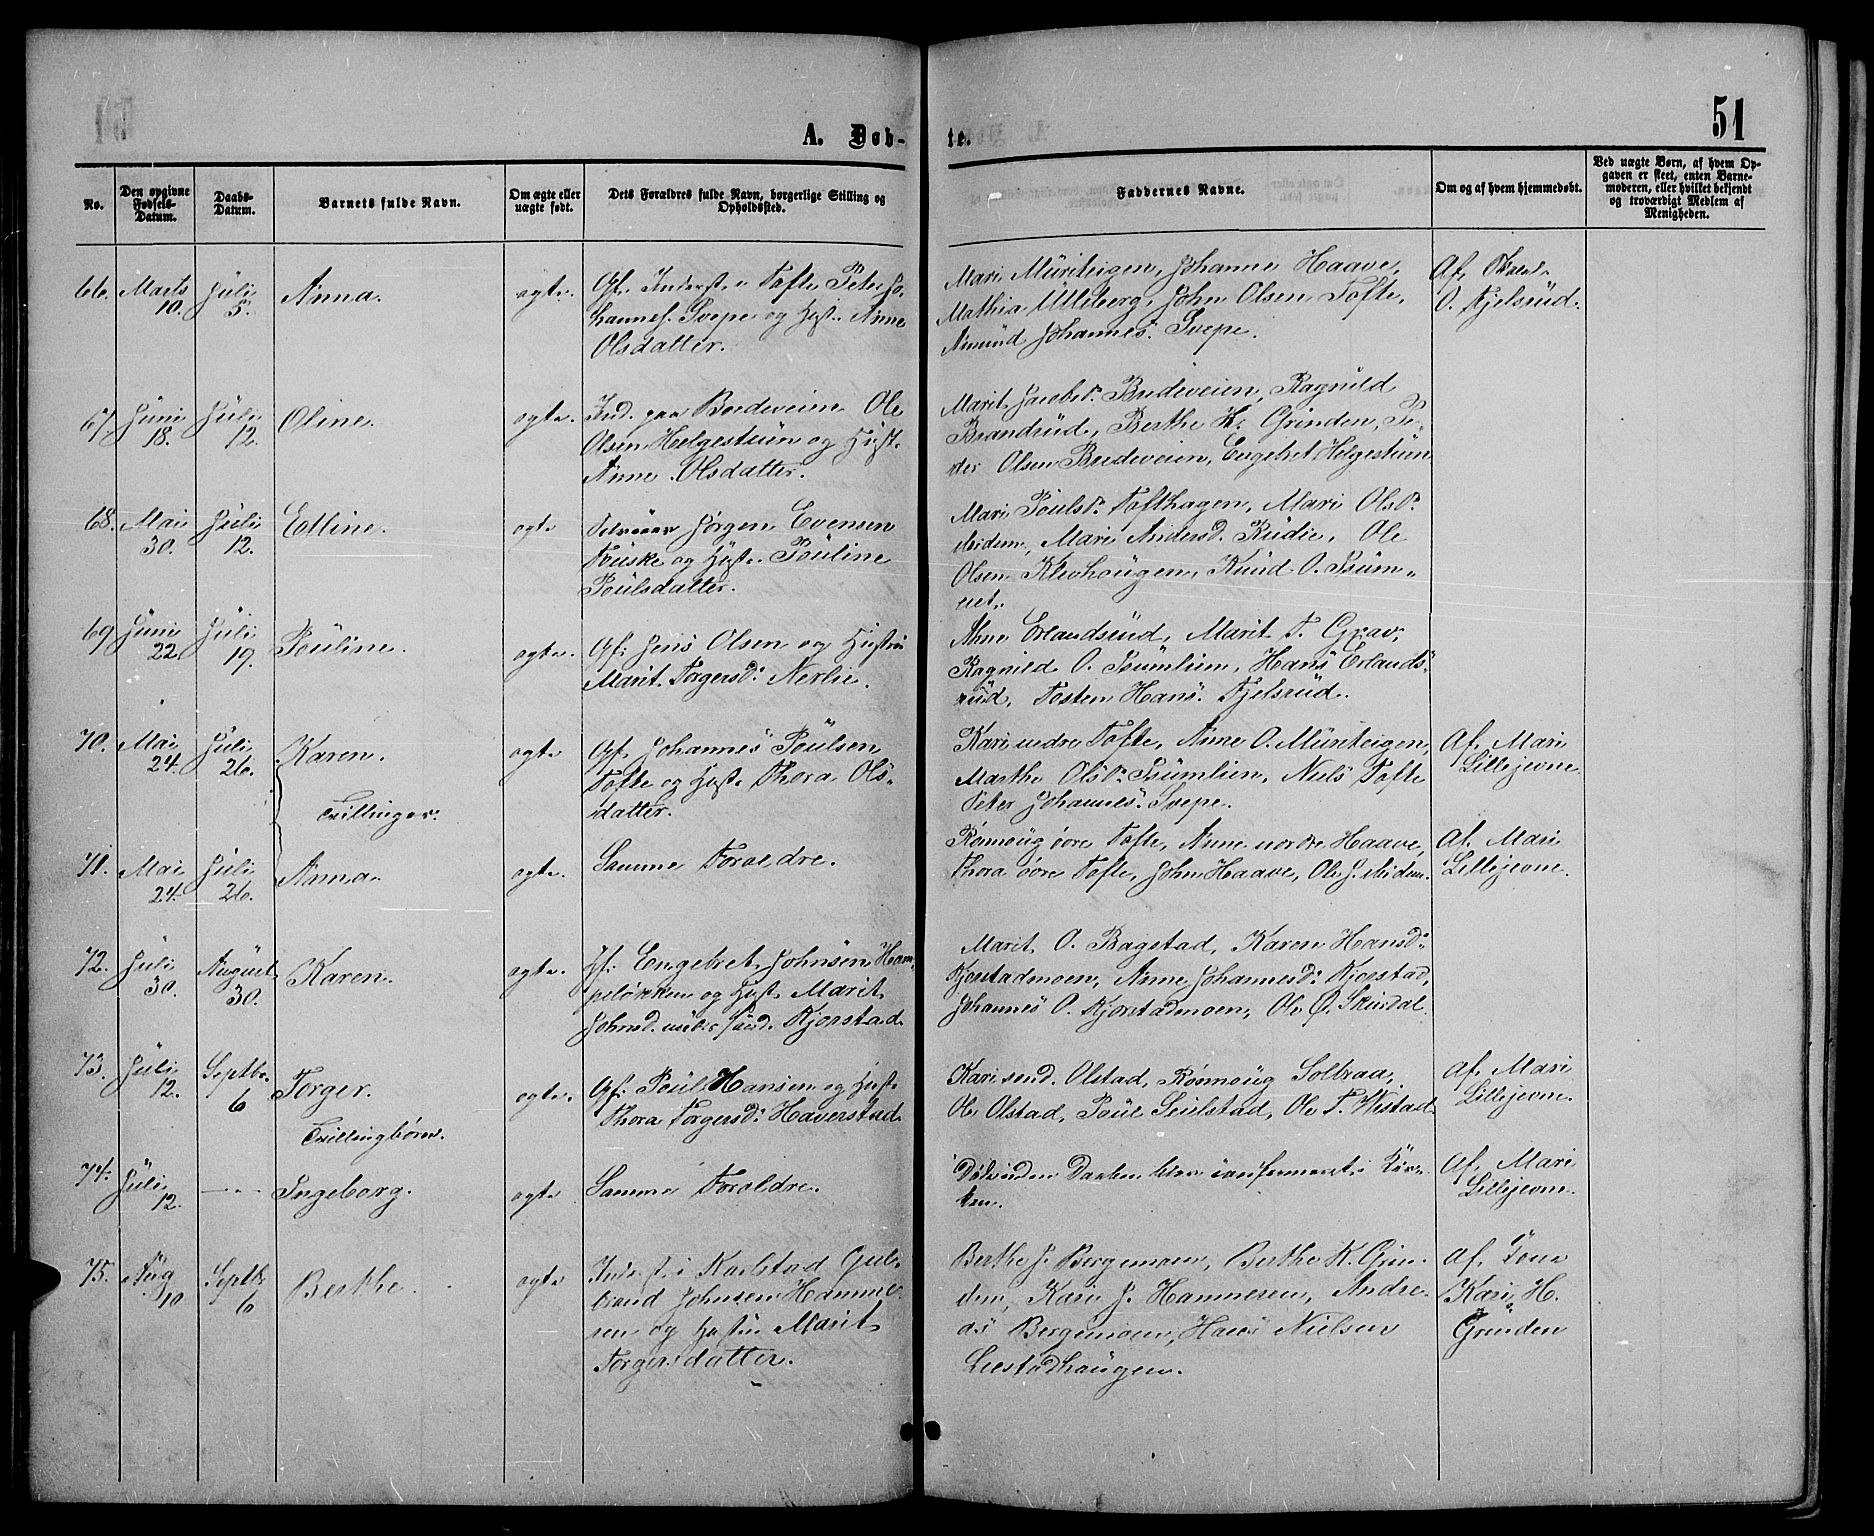 51
A. Døb-
te.
No.
Den opgivne Fødsels-Datum.
Daabs-Datum.
Barnets fulde Navn.
Om ægte eller uægte født.
Dets Forældres fulde Navn, borgerlige Stilling og Opholdssted.
Faddernes Navne.
Om og af hvem hjemmedøbt.
Ved uægte Børn, af hvem Op-
gaven er skeet, enten Barne-
moderen, eller hvilket bekjendt
og troværdigt Medlem af
Menigheden.
66. Marts 10. Juli 5. Anna. ægte.
Gf. Inderst i Tofte Peter Jo-
hannes. Svepe og Hust. Anne
Olsdatter.
Mari Muriteigen, Johanne Haave,
Mathia Ulleberg, John Olsen Tofte,
Amund Johannes. Svepe.
Af
O. Fjelsrud.
67. Juni 18. Juli 12. Oline. ægte.
Ind. paa Bredeveien Ole
Olsen Helgestuen og Hust.
Anne Olsdatter.
Marit Jacobsd. Bredeveien, Ragnild
Brandrud, Berthe K. Grinden, Pe-
der Olsen Bredeveien, Engebret Helgestuen
68. Mai 30. Juli 12. Edline. ægte
Jørgen Evensen
og Hust. Pouline
Poulsdatter.
Mari Poulsd. Tofthagen, Mari Olsd.
Midem, Mari Andersd. Rudie, Ole
Olsen Klevhougen, Knud O.
69 Juni 22. Juli 19. Pouline. ægte.
Gf. Jens Olsen og Hustru
Marit Torgersd. Nerlie.
Anne Erlandsrud, Marit T. Grav,
Ragnild O. Bumlien, Hans Erlands-
rud, Tosten Hans. Fjelsrud.
70. Mai 24. Juli 26. Karen. ægte
Gf. Johannes Poulsen
Tofte og Hust. Thora Ols-
datter.
Kari nedre Tofte, Anne O. Muriteigen,
Marthe Olsd. Bumlien, Niels Tofte
Peter Johannes. Svepe.
Af Mari
Lillejevne.
Tvillinger.
71. Mai 24. Juli 26. Anna. ægte.
Samme Forældre.
Rønnoug øvre Tofte, Anne nordre Haave,
Thora øvre Tofte, John Haave, Ole J. Midem.
Af Mari
Lillejevne.
72. Juli 30. August 30. Karen. ægte.
Gf. Engebret Johnsen Ham-
peløkken og Hust. Marit
Johnsd. under sønd. Kjorstad.
Marit O. Bagstad, Karen Hansd.
Kjorstadmoen, Anne Johannesd. Kjorstad,
Johannes O. Kjorstadmoen, Ole Ø. Skurdal.
73. Juli 12. Septbr. 6 Torger. ægte.
Gf. Poul Hansen og Hust.
Thora Torgersd. Haverstad.
Kari sønd. Olstad, Rønnoug Solbraa,
Ole Olstad, Poul Seielstad, Ole T. Wistad
Af Mari
Lillejevne.
Tvillingbørn.
74. Juli 12. — " — Ingeborg. ægte
Samme Forældre.
Døde inden Daaben blev confirmeret i Kir-
ken.
Af Mari
Lillejevne.
75. Aug 10 Septbr 6 Berthe. ægte
Inderst i Karlstad Gul-
brand Johnsen Hamme-
ren og Hustru Marit
Torgersdatter.
Berthe J. Bergemoen, Berthe K. Grin-
den, Kari J. Hammeren, Andre-
as Bergemoen, Hans Nielsen
Liestadhaugen.
Af
Kari H.
Grinden